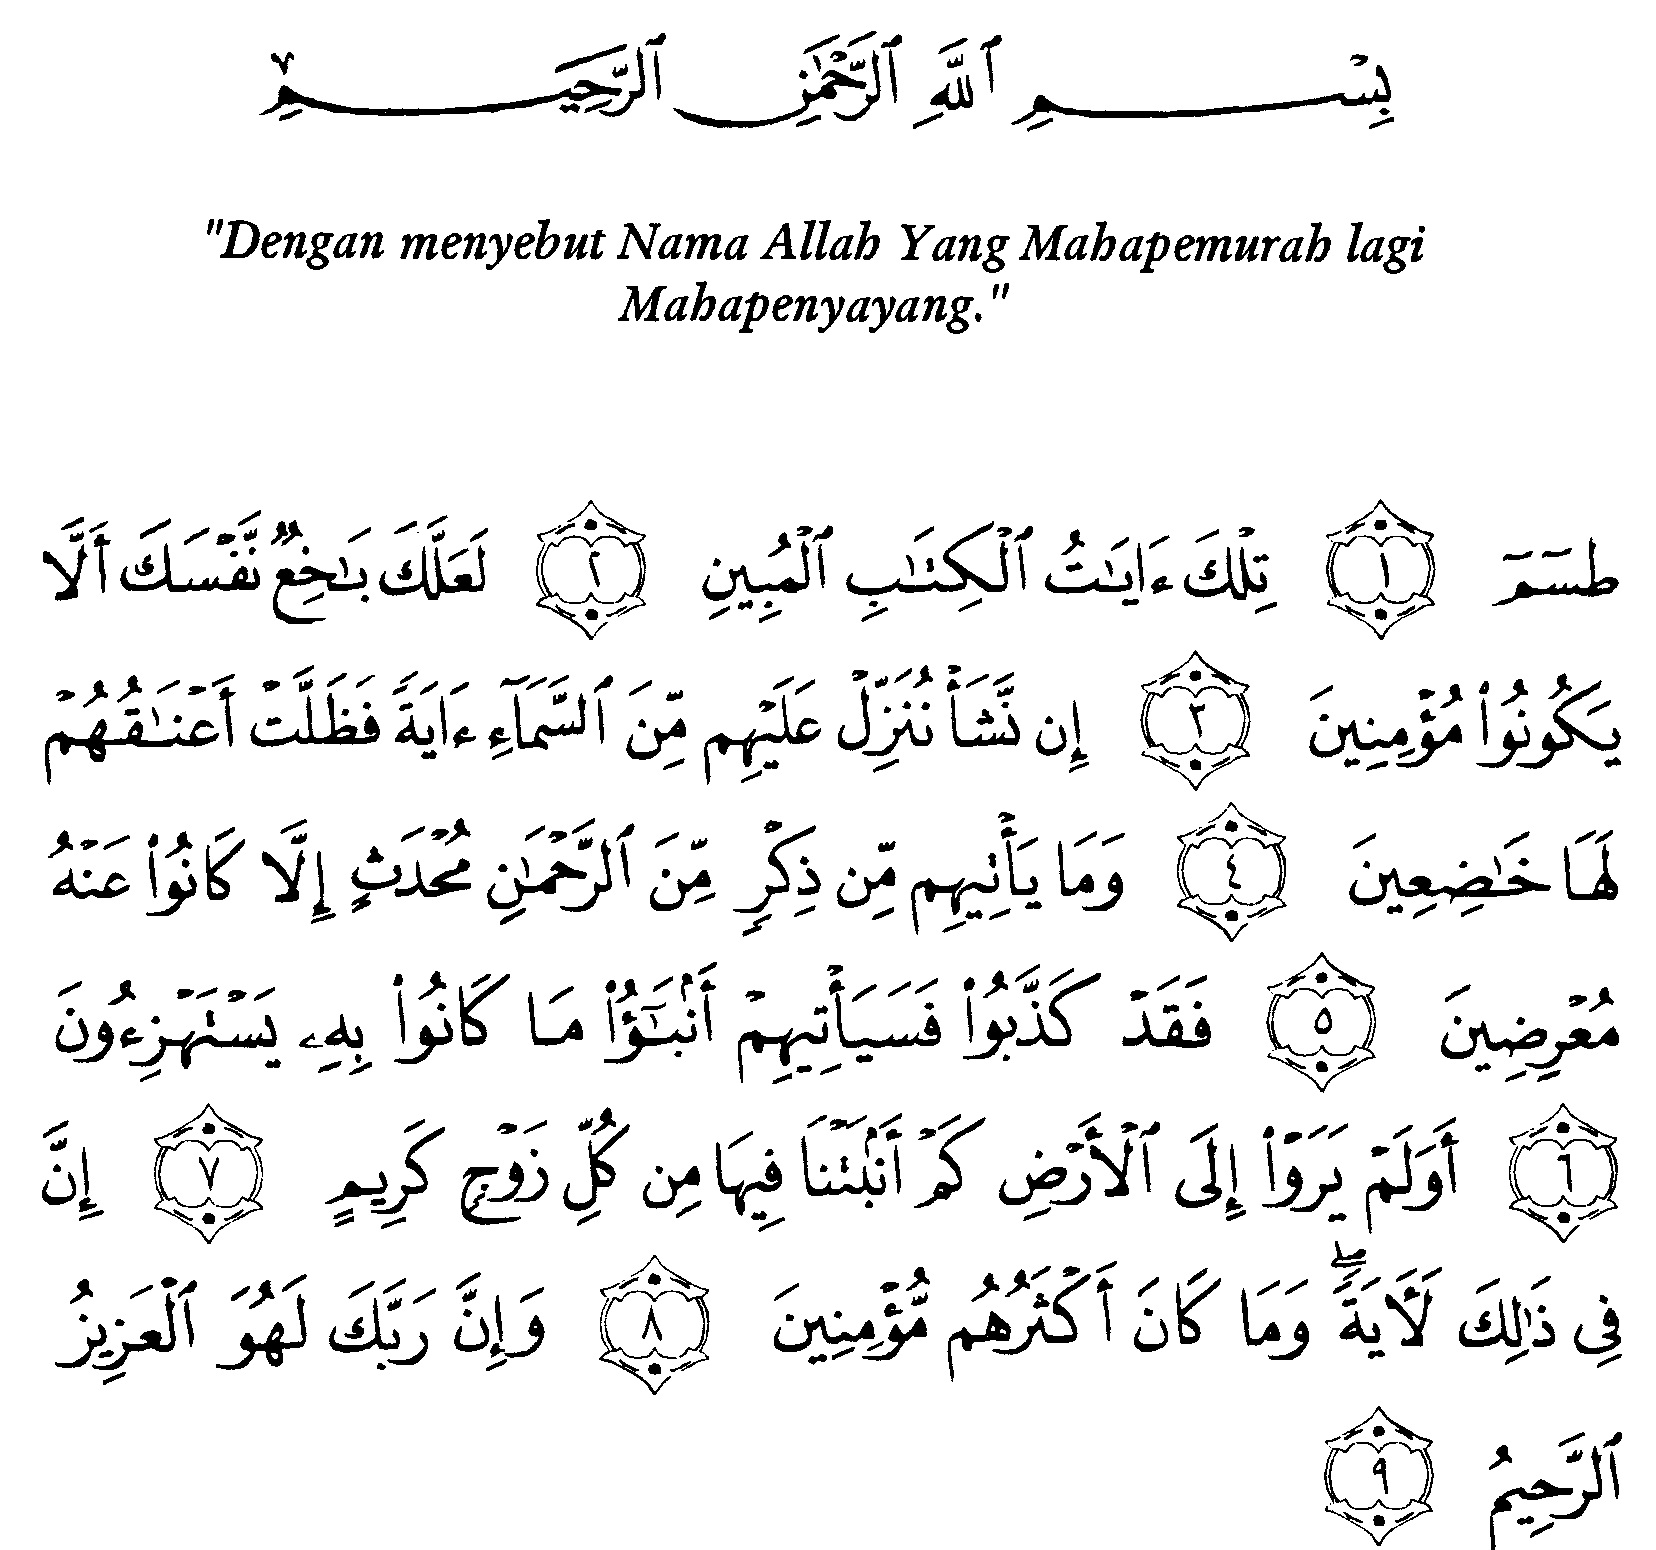 بِسْمِ ٱللَّهِ ٱلرَّحْمَٰنِ ٱلرَّحِيمِ
"Dengan menyebut Nama Allah Yang Mahapemurah lagi
Mahapenyayang."
طسٓمٓ ١ تِلْكَ ءَايَٰتُ ٱلْكِتَٰبِ ٱلْمُبِينِ ٢ لَعَلَّكَ بَٰخِعٌ نَّفْسَكَ أَلَّا
يَكُونُوا۟ مُؤْمِنِينَ ٣ إِن نَّشَأْ نُنَزِّلْ عَلَيْهِم مِّنَ ٱلسَّمَآءِ ءَايَةً فَظَلَّتْ أَعْنَٰقُهُمْ
لَهَا خَٰضِعِينَ ٤ وَمَا يَأْتِيهِم مِّن ذِكْرٍ مِّنَ ٱلرَّحْمَٰنِ مُحْدَثٍ إِلَّا كَانُوا۟ عَنْهُ
مُعْرِضِينَ ٥ فَقَدْ كَذَّبُوا۟ فَسَيَأْتِيهِمْ أَنۢبَٰٓؤُا۟ مَا كَانُوا۟ بِهِۦ يَسْتَهْزِءُونَ
٦ أَوَلَمْ يَرَوْا۟ إِلَى ٱلْأَرْضِ كَمْ أَنۢبَتْنَا فِيهَا مِن كُلِّ زَوْجٍ كَرِيمٍ ٧ إِنَّ
فِى ذَٰلِكَ لَءَايَةً ۖ وَمَا كَانَ أَكْثَرُهُم مُّؤْمِنِينَ ٨ وَإِنَّ رَبَّكَ لَهُوَ ٱلْعَزِيزُ
ٱلرَّحِيمُ ٩